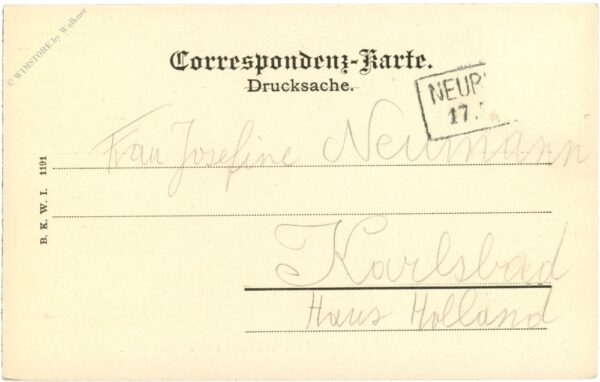 © WIMSTORE by Walkner
Correspondenz-Karte.
Drucksache.
NEUP
17.
Frau Josefine Neumann
Karlsbad
Haus Holland
B. K. W. I. 1191